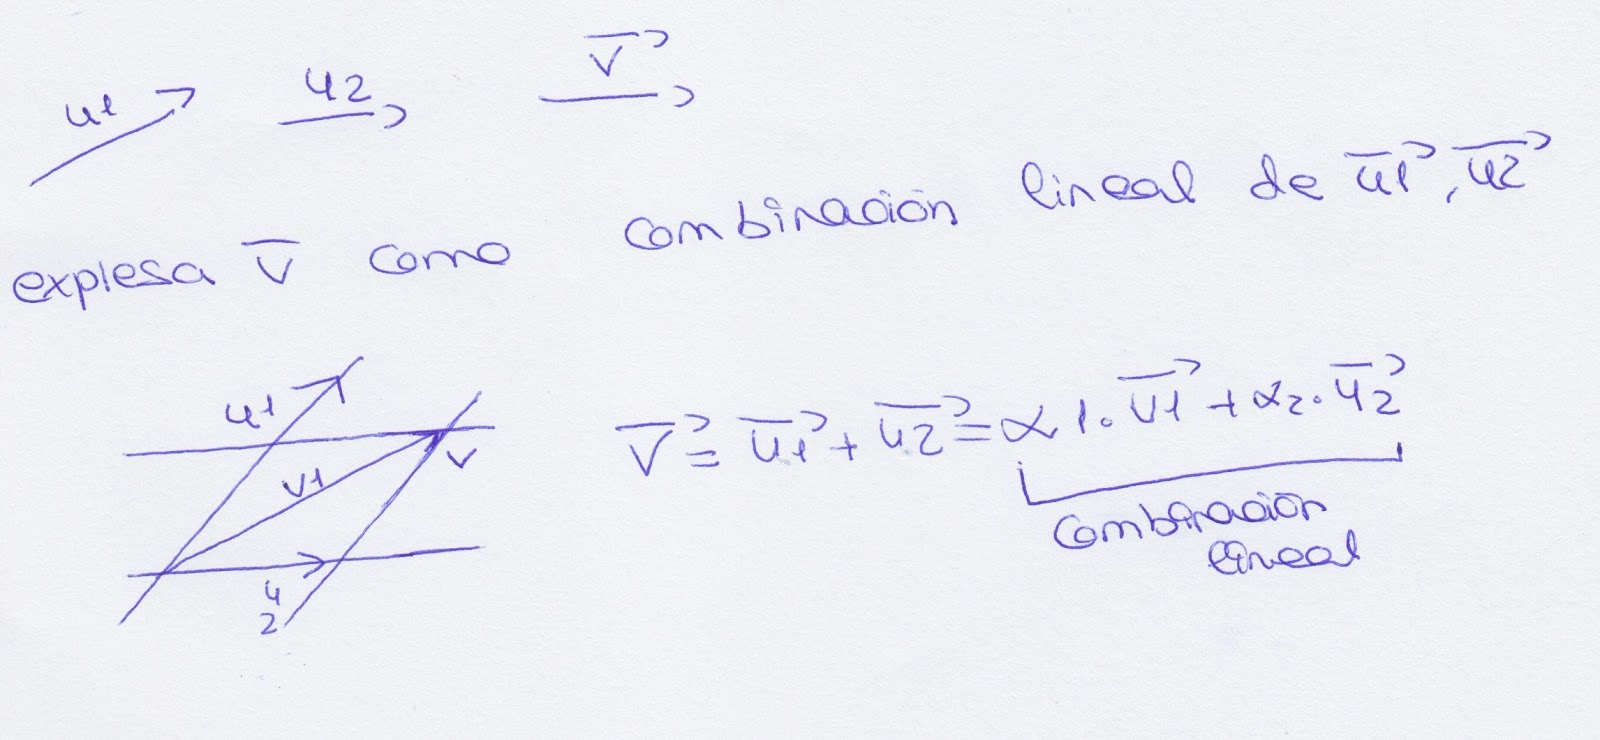 u1 u2 v
expresa v como combinación lineal de u1, u2
u1
v1
v
u2
v = u1 + u2 = α1·u1 + α2·u2
Combinación
lineal